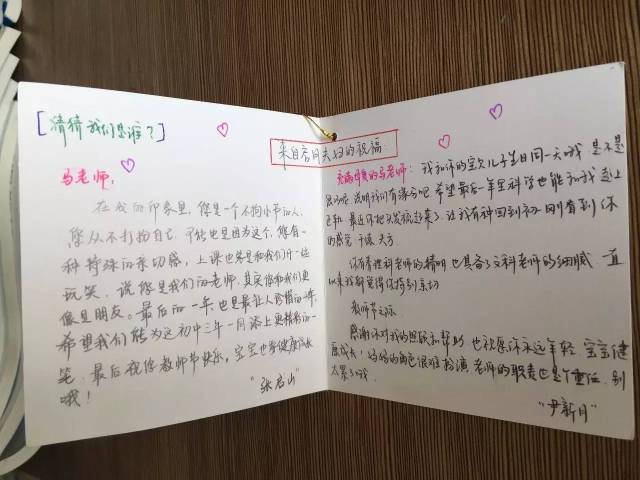 [猜猜我们是谁？]
来自启月夫妇的祝福
马老师：
在我的印象里，您是一个不拘小节的人，
您从不打扮自己，可能也是因为这个，您有一
种特殊的亲切感，上课也老是和我们开一些
玩笑，说您是我们的老师，其实您和我们更
像是朋友。最后的一年，也是最让人珍惜的一年，
希望我们能为这初中三年一同添上更精彩的一
笔，最后祝您教师节快乐，宝宝也要健康成长
哦！
"张启山"
充满母爱的马老师：我和你的宝贝儿子生日同一天哦 是不是
很巧啦 说明我们有缘分吧 希望最后一年里科学也能和我走上
正轨 最近你把头发披起来了 让我有种回到初一刚看到你
的感觉
你有着理科老师的精明 也具备了文科老师的细腻 一直
以来我都觉得你特别亲切
教师节之际
感谢你对我的照顾和帮助 也祝愿你永远年轻 宝宝健
康成长，妈妈的角色很难扮演 老师的职责也是个重任 别
太累了哦
"尹新月"